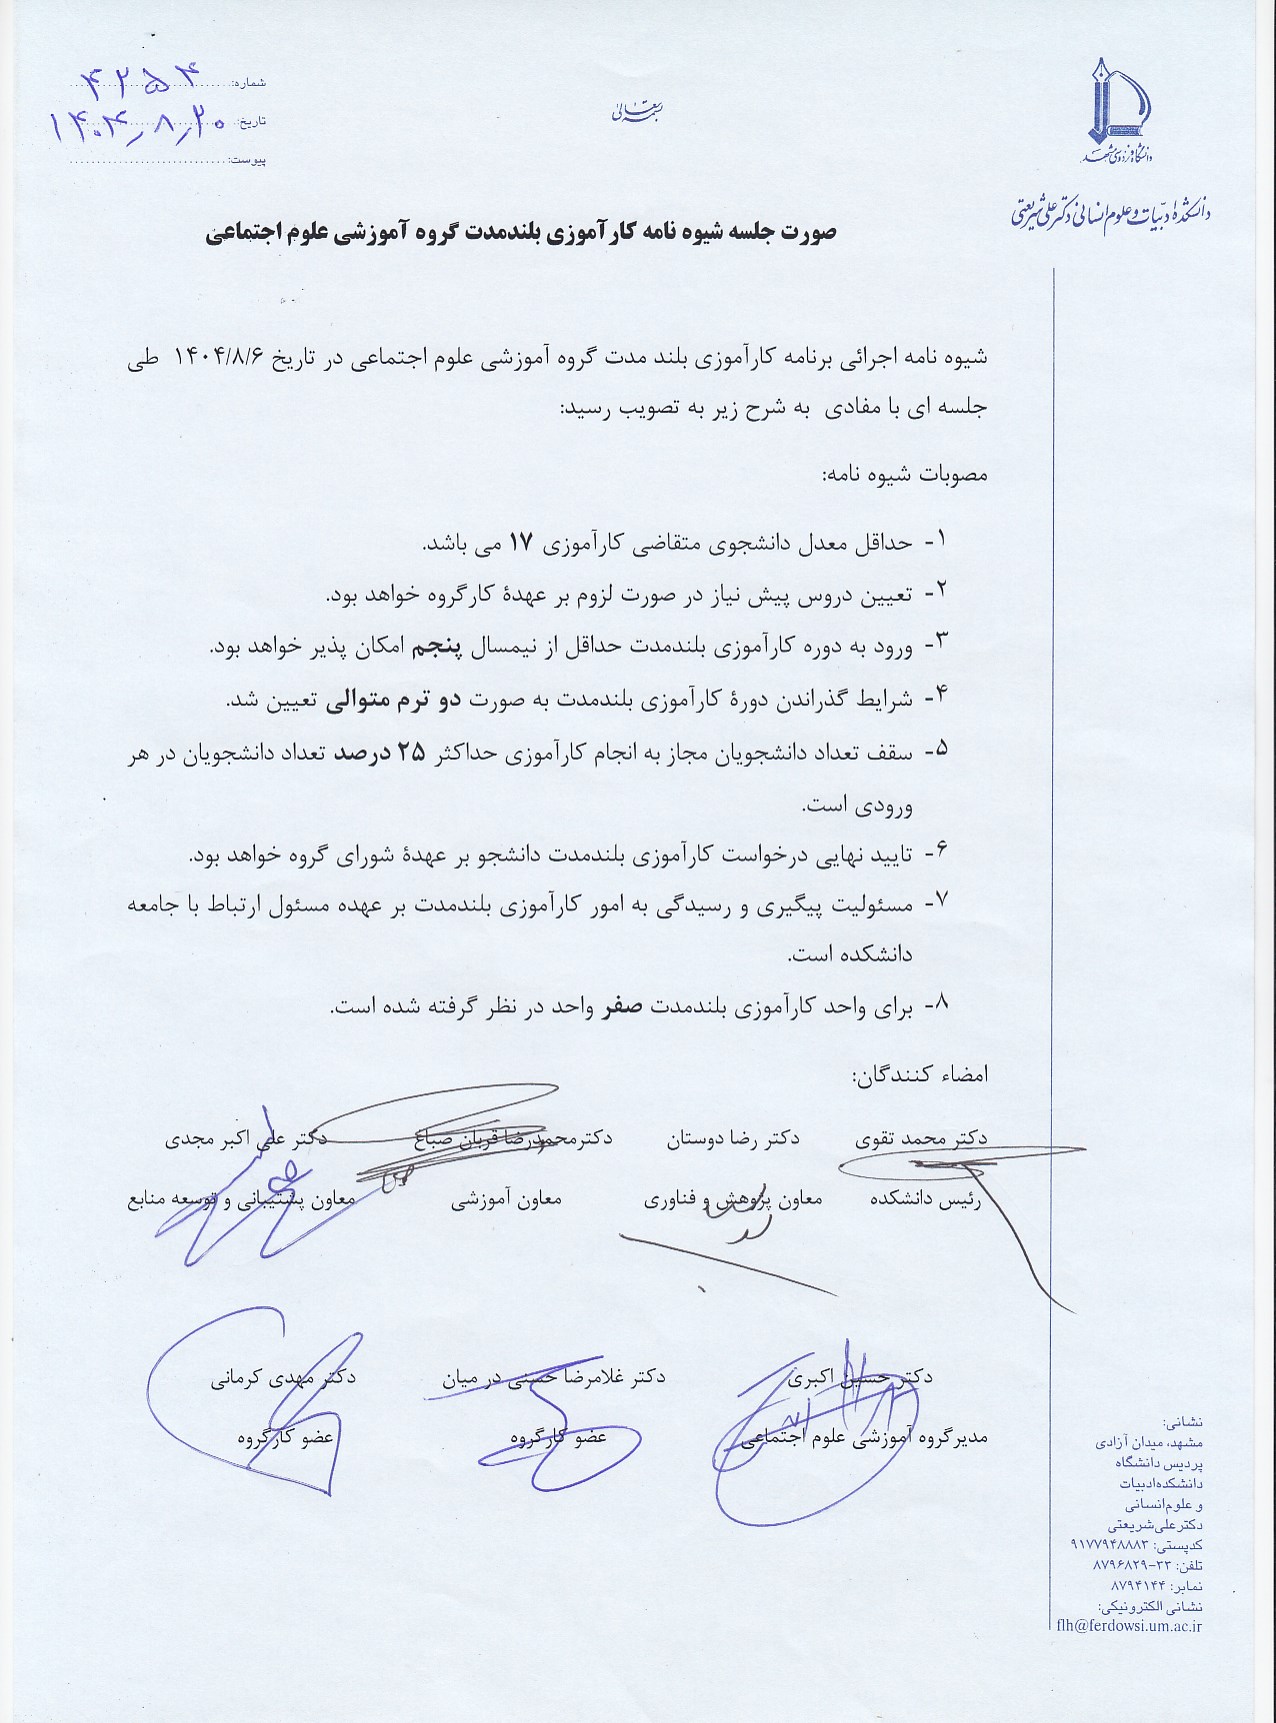 شماره: ۴۲۵۴
تاریخ: ۱۴۰۴٫۸٫۲۰
پیوست:
بسمه تعالی
دانشگاه فردوسی مشهد
دانشکدهٔ ادبیات و علوم انسانی دکتر علی شریعتی
صورت جلسه شیوه نامه کارآموزی بلندمدت گروه آموزشی علوم اجتماعی
شیوه نامه اجرائی برنامه کارآموزی بلند مدت گروه آموزشی علوم اجتماعی در تاریخ ۱۴۰۴/۸/۶ طی
جلسه ای با مفادی به شرح زیر به تصویب رسید:
مصوبات شیوه نامه:
۱- حداقل معدل دانشجوی متقاضی کارآموزی ۱۷ می باشد.
۲- تعیین دروس پیش نیاز در صورت لزوم بر عهدهٔ کارگروه خواهد بود.
۳- ورود به دوره کارآموزی بلندمدت حداقل از نیمسال پنجم امکان پذیر خواهد بود.
۴- شرایط گذراندن دورهٔ کارآموزی بلندمدت به صورت دو ترم متوالی تعیین شد.
۵- سقف تعداد دانشجویان مجاز به انجام کارآموزی حداکثر ۲۵ درصد تعداد دانشجویان در هر
ورودی است.
۶- تایید نهایی درخواست کارآموزی بلندمدت دانشجو بر عهدهٔ شورای گروه خواهد بود.
۷- مسئولیت پیگیری و رسیدگی به امور کارآموزی بلندمدت بر عهده مسئول ارتباط با جامعه
دانشکده است.
۸- برای واحد کارآموزی بلندمدت صفر واحد در نظر گرفته شده است.
امضاء کنندگان:
دکتر محمد تقوی دکتر رضا دوستان دکترمحمدرضا قربان صباغ دکتر علی اکبر مجدی
رئیس دانشکده معاون پژوهش و فناوری معاون آموزشی معاون پشتیبانی و توسعه منابع
دکتر حسین اکبری دکتر غلامرضا حسنی در میان دکتر مهدی کرمانی
مدیرگروه آموزشی علوم اجتماعی عضو کارگروه عضو کارگروه
نشانی:
مشهد، میدان آزادی
پردیس دانشگاه
دانشکده‌ادبیات
و علوم‌انسانی
دکترعلی‌شریعتی
کدپستی: ۹۱۷۷۹۴۸۸۸۳
تلفن: ۳۳-۸۷۹۶۸۲۹
نمابر: ۸۷۹۴۱۴۴
نشانی الکترونیکی:
flh@ferdowsi.um.ac.ir